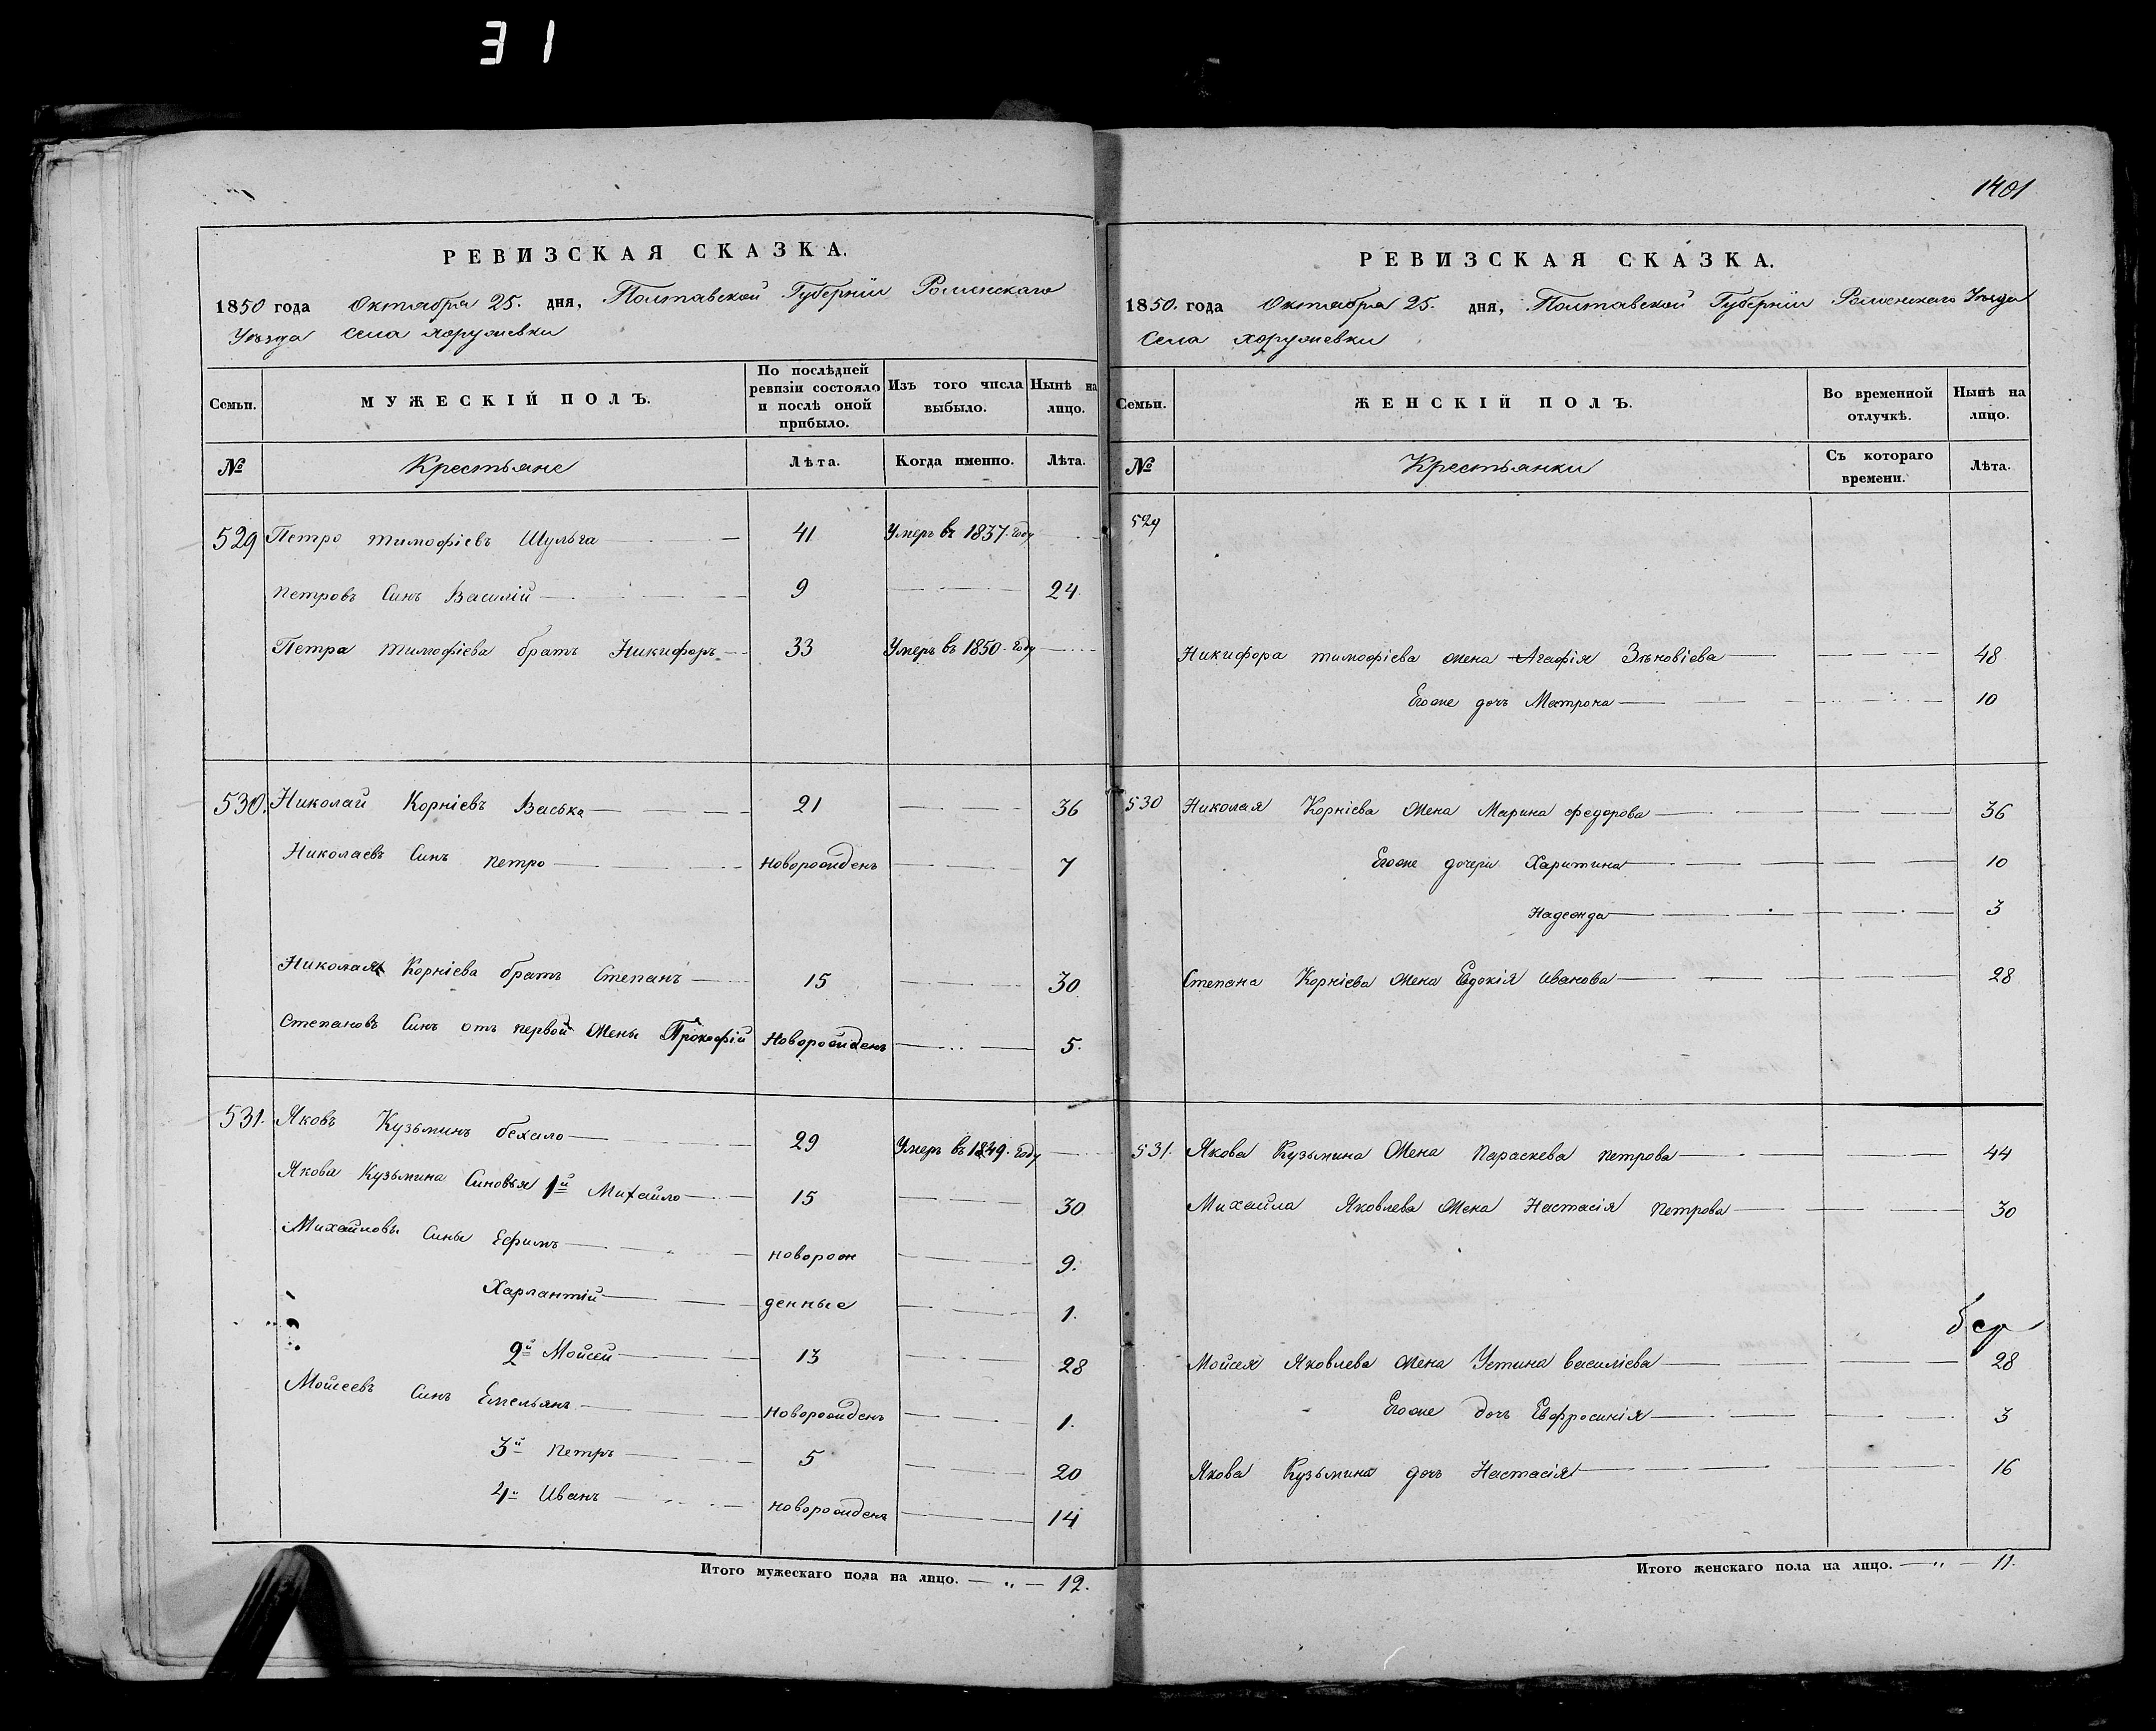 31
РЕВИЗСКАЯ СКАЗКА.
1850 года Октября 25. дня, Полтавской Губерніи Роменскаго
Уѣзда Села Хоружевки
Семьи. МУЖЕСКІЙ ПОЛЪ. По послѣдней ревизіи состояло и послѣ оной прибыло. Изъ того числа выбыло. Нынѣ на лицо.
№ Крестьяне Лѣта. Когда именно. Лѣта.
529 Петро Тимофіевъ Шульга 41 Умеръ въ 1837. году
Петровъ Синъ Василій 9 24.
Петра Тимофіева братъ Никифоръ 33 Умеръ въ 1850. году
530. Николай Корніевъ Васька 21 36
Николаевъ Синъ Петро Новорожденъ 7
Николая Корніева братъ Степанъ 15 30
Степановъ Синъ отъ первой жены Прокофій Новорожденъ 5.
531. Яковъ Кузьминъ бехало 29 Умеръ въ 1849. году
Якова Кузьмина Синовья 1й Михайло 15 30
Михайловы Сины Ефимъ новорож 9.
Харлантій денные 1.
2й Мойсей 13 28
Мойсеевъ Синъ Емельянъ Новорожденъ 1.
3й Петръ 5 20
4й Иванъ Новорожденъ 14
Итого мужескаго пола на лицо. — „ — 12.
1401
РЕВИЗСКАЯ СКАЗКА.
1850. года Октября 25. дня, Полтавской Губерніи Роменскаго Уѣзда
Села Хоружевки
Семьи. ЖЕНСКІЙ ПОЛЪ. Во временной отлучкѣ. Нынѣ на лицо.
№ Крестьянки Съ котораго времени. Лѣта.
529
Никифора Тимофіева жена Агафія Зѣновіева 48
Егоже дочь Матрона 10
530 Николая Корніева жена Марина Федорова 36
Егоже дочери Харитина 10
Надежда 3
Степана Корніева жена Евдокія Иванова 28
531. Якова Кузьмина жена Параскева Петрова 44
Михайла Яковлева жена Настасія Петрова 30
Мойсея Яковлева жена Устина Василіева 28
Егоже дочь Евфросинія 3
Якова Кузьмина дочь Настасія 16
Итого женскаго пола на лицо. — „ — 11.